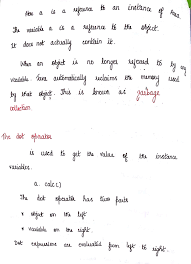 Here a is a reference to an instance of Area.
The variable a is a reference to the object.
It does not actually contain it.
When an object is no longer referred to by any
variable, Java automatically reclaims the memory used
by that object. This is known as garbage
collection
The dot operator
is used to get the value of the instance
variables.
a. calc()
The dot operator has two parts
* object on the left
* variable on the right.
Dot expressions are evaluated from left to right.